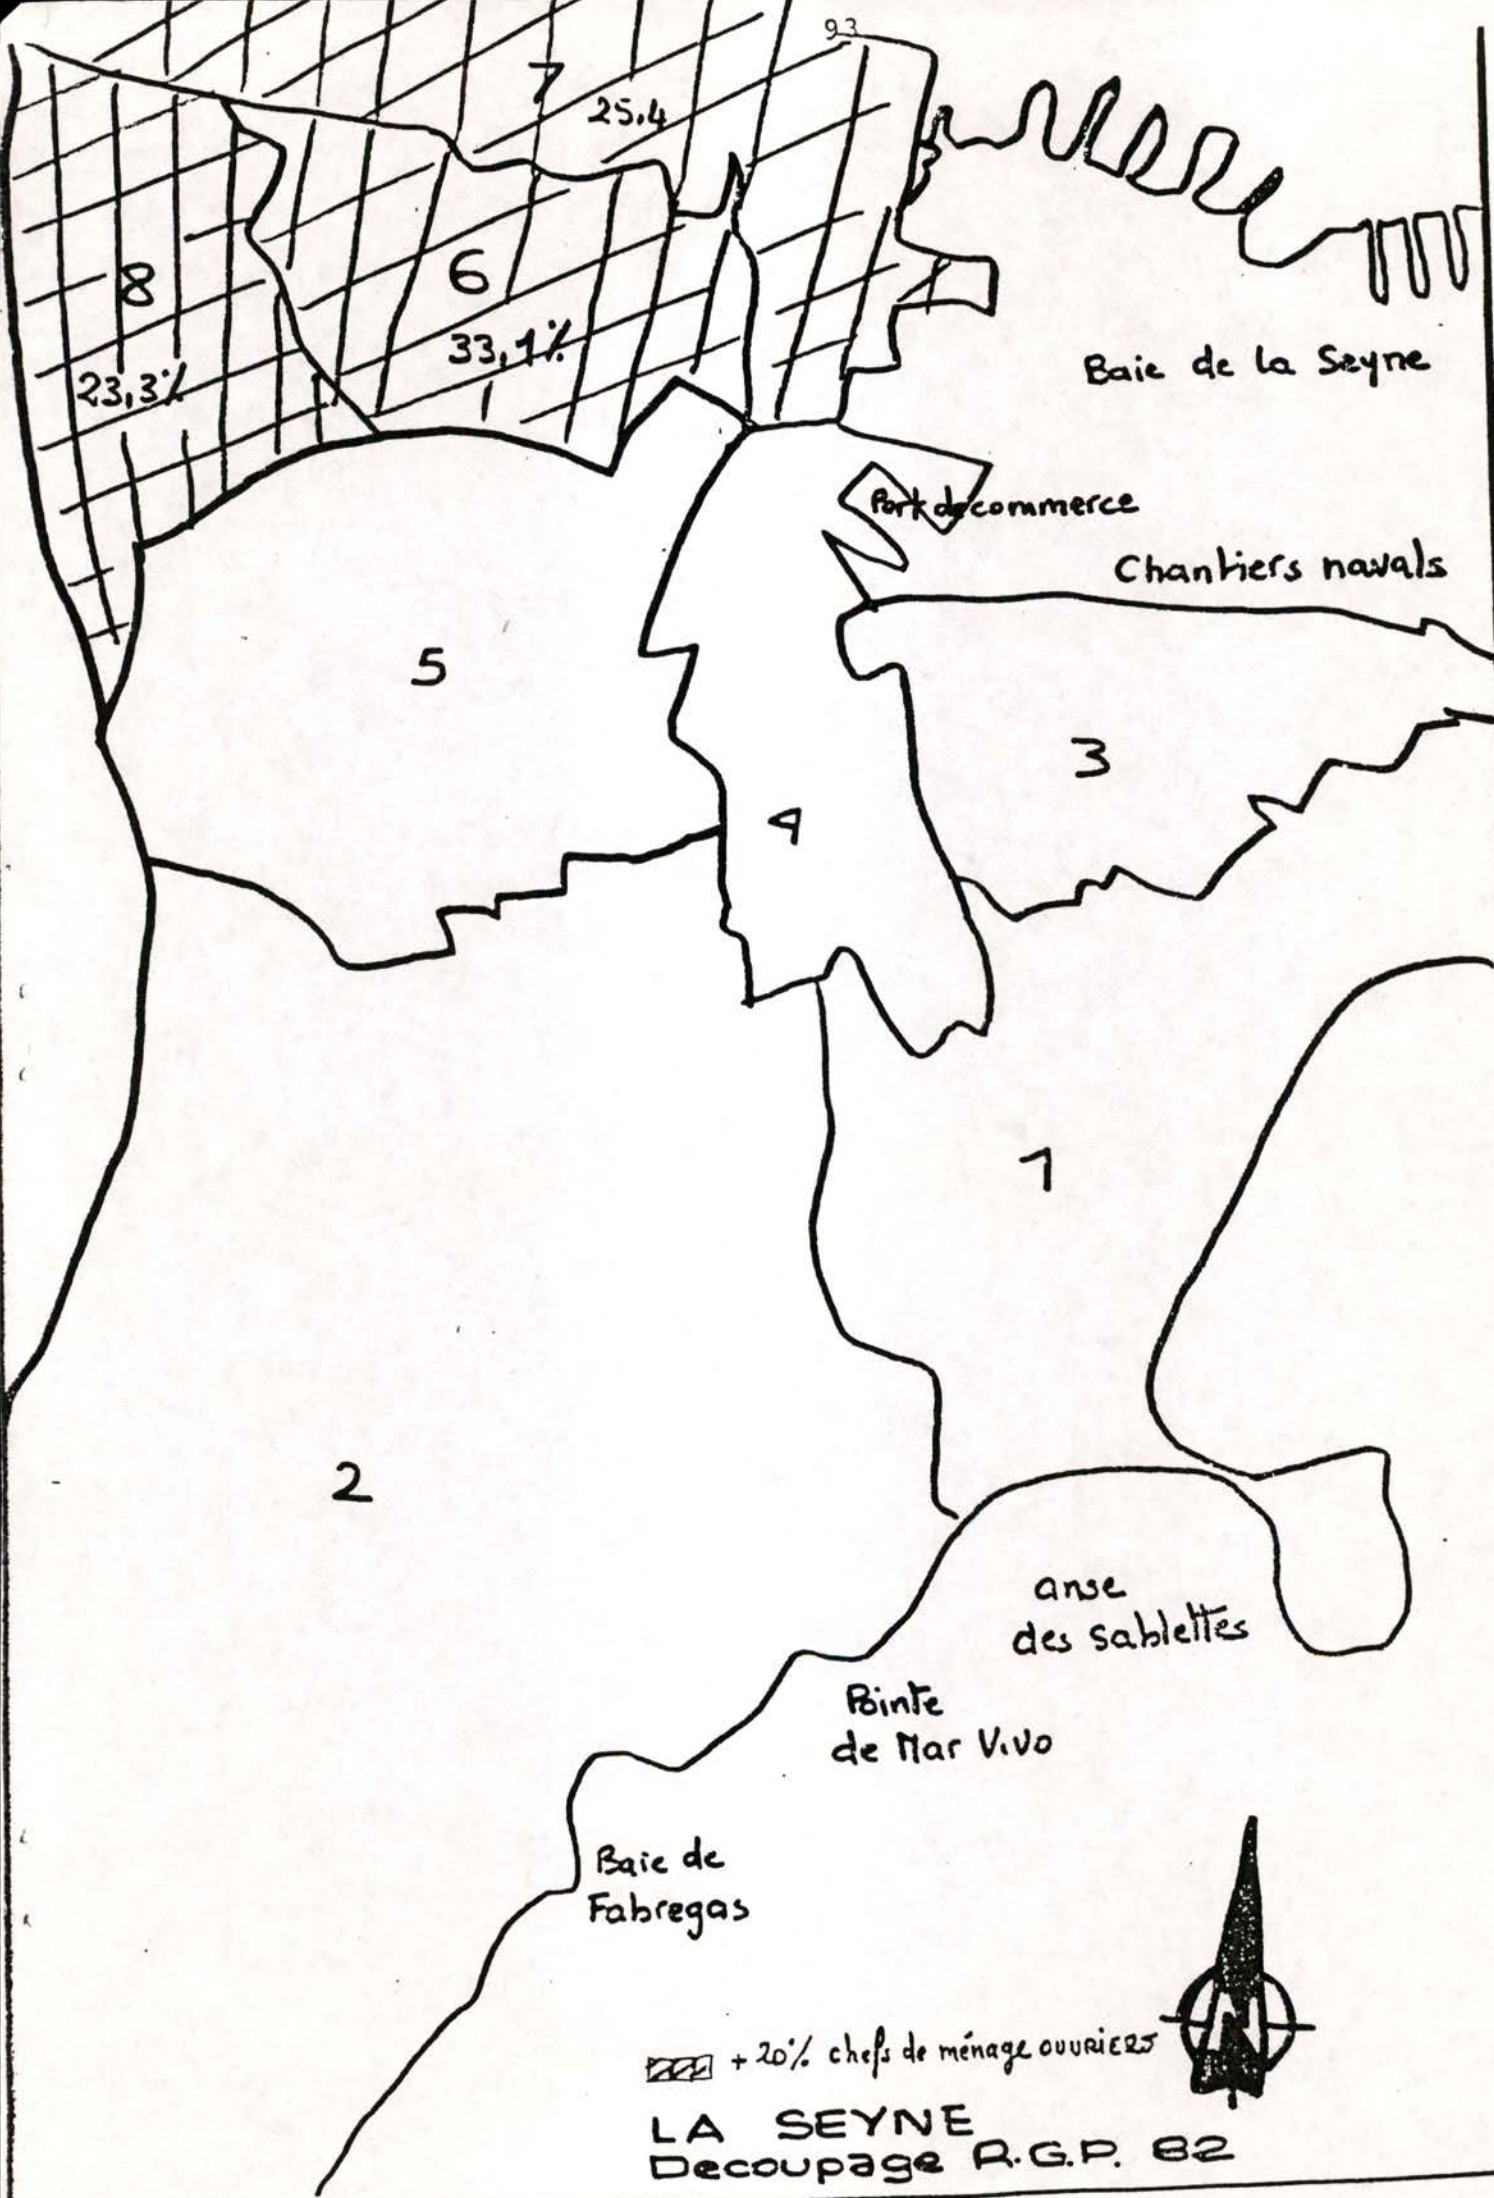 93
7
25.4
8
6
33,1%
23,3%
Baie de la Seyne
Port de commerce
Chantiers navals
5
3
4
1
2
anse
des sablettes
Pointe
de Mar Vivo
Baie de
Fabregas
N
+ 20% chefs de ménage OUVRIERS
LA SEYNE
Decoupage R.G.P. 82